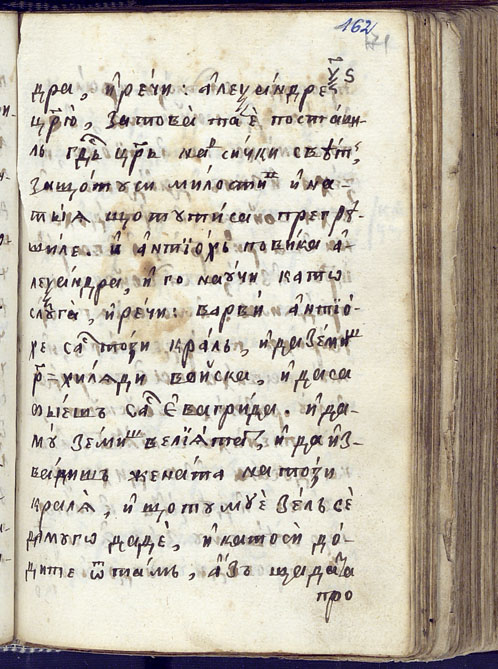 162
71
ѱѕ
дра, и҆ рече́и : а҆леѯа́ндре
цр҃ю, зато́ва та е҆ поста́ви-
ль гдь҇ цр҃ь на си́чки свѣт,
защо́ту си ми́лостив и҆ на-
тыѧ що ту ти са прегрѣ-
шиле. и҆ а҆нтїо́хъ пови́ка а҆-
леѯа́ндра, и҆ го научи като
слуга̀, и҆ ре́чи: варви́ а҆нтїо́-
хе са то́зи кра́ль, и҆ да зе́миш
р҃ = хи́лѧди во́йска, и҆ да са
бїе́шъ са е҆вагри́да. и҆ да-
мꙋ̀ зе́миш велїѧ́та, и҆ да и҆з-
ва́дишъ жена́та на то́зи
кра́лѧ, и҆ що ту мꙋ е҆ зе́лъ се
да мꙋ го дадѐ, и҆ като си до́-
дите ѿта́мъ, а҆́зъ ща да та
про